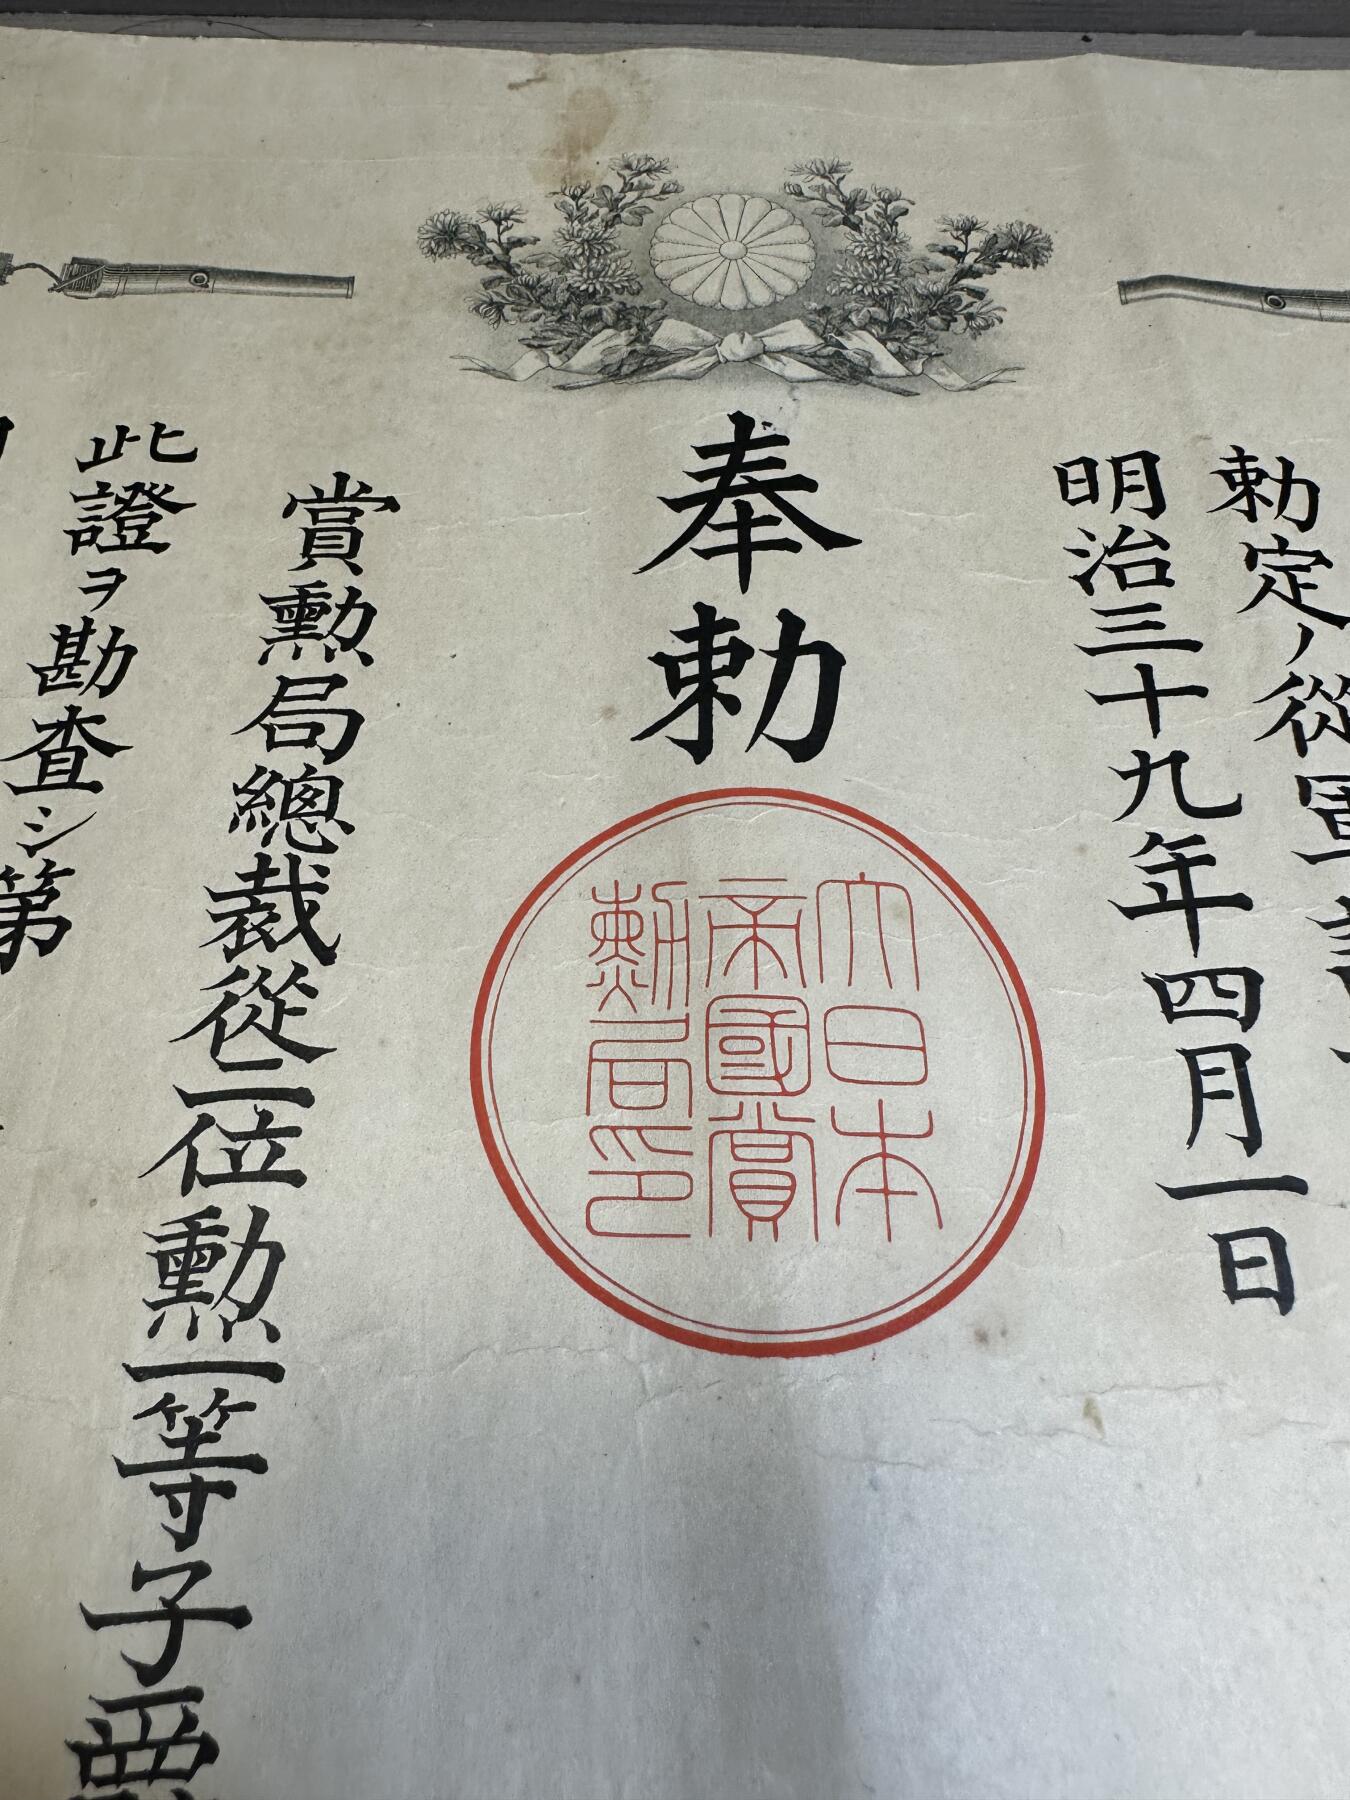 勅定ノ從軍
明治三十九年四月一日
奉勅
大日本
帝國賞
勲局印
賞勲局總裁從二位勲一等子爵
此證ヲ勘査シ第